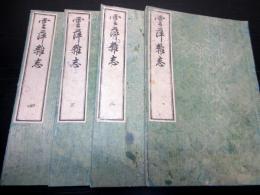 雲萍雜志 一
雲萍雜志 二
雲萍雜志 三
雲萍雜志 四